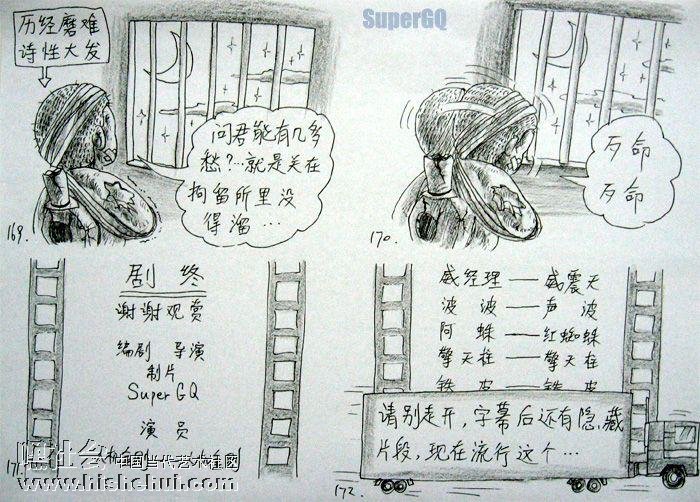 SuperGQ
历经磨难
诗性大发
问君能有几多
愁?…就是关在
拘留所里没
得溜…
169.
歹命
歹命
170.
剧终
谢谢观赏
编剧 导演
制片
SuperGQ
演员
威经理——威震天
波波——声波
阿蛛——红蜘蛛
擎天柱——擎天柱
铁皮——铁皮
请别走开,字幕后还有隐藏
片段,现在流行这个…
172.
中国当代艺术社区
www.hishehui.com